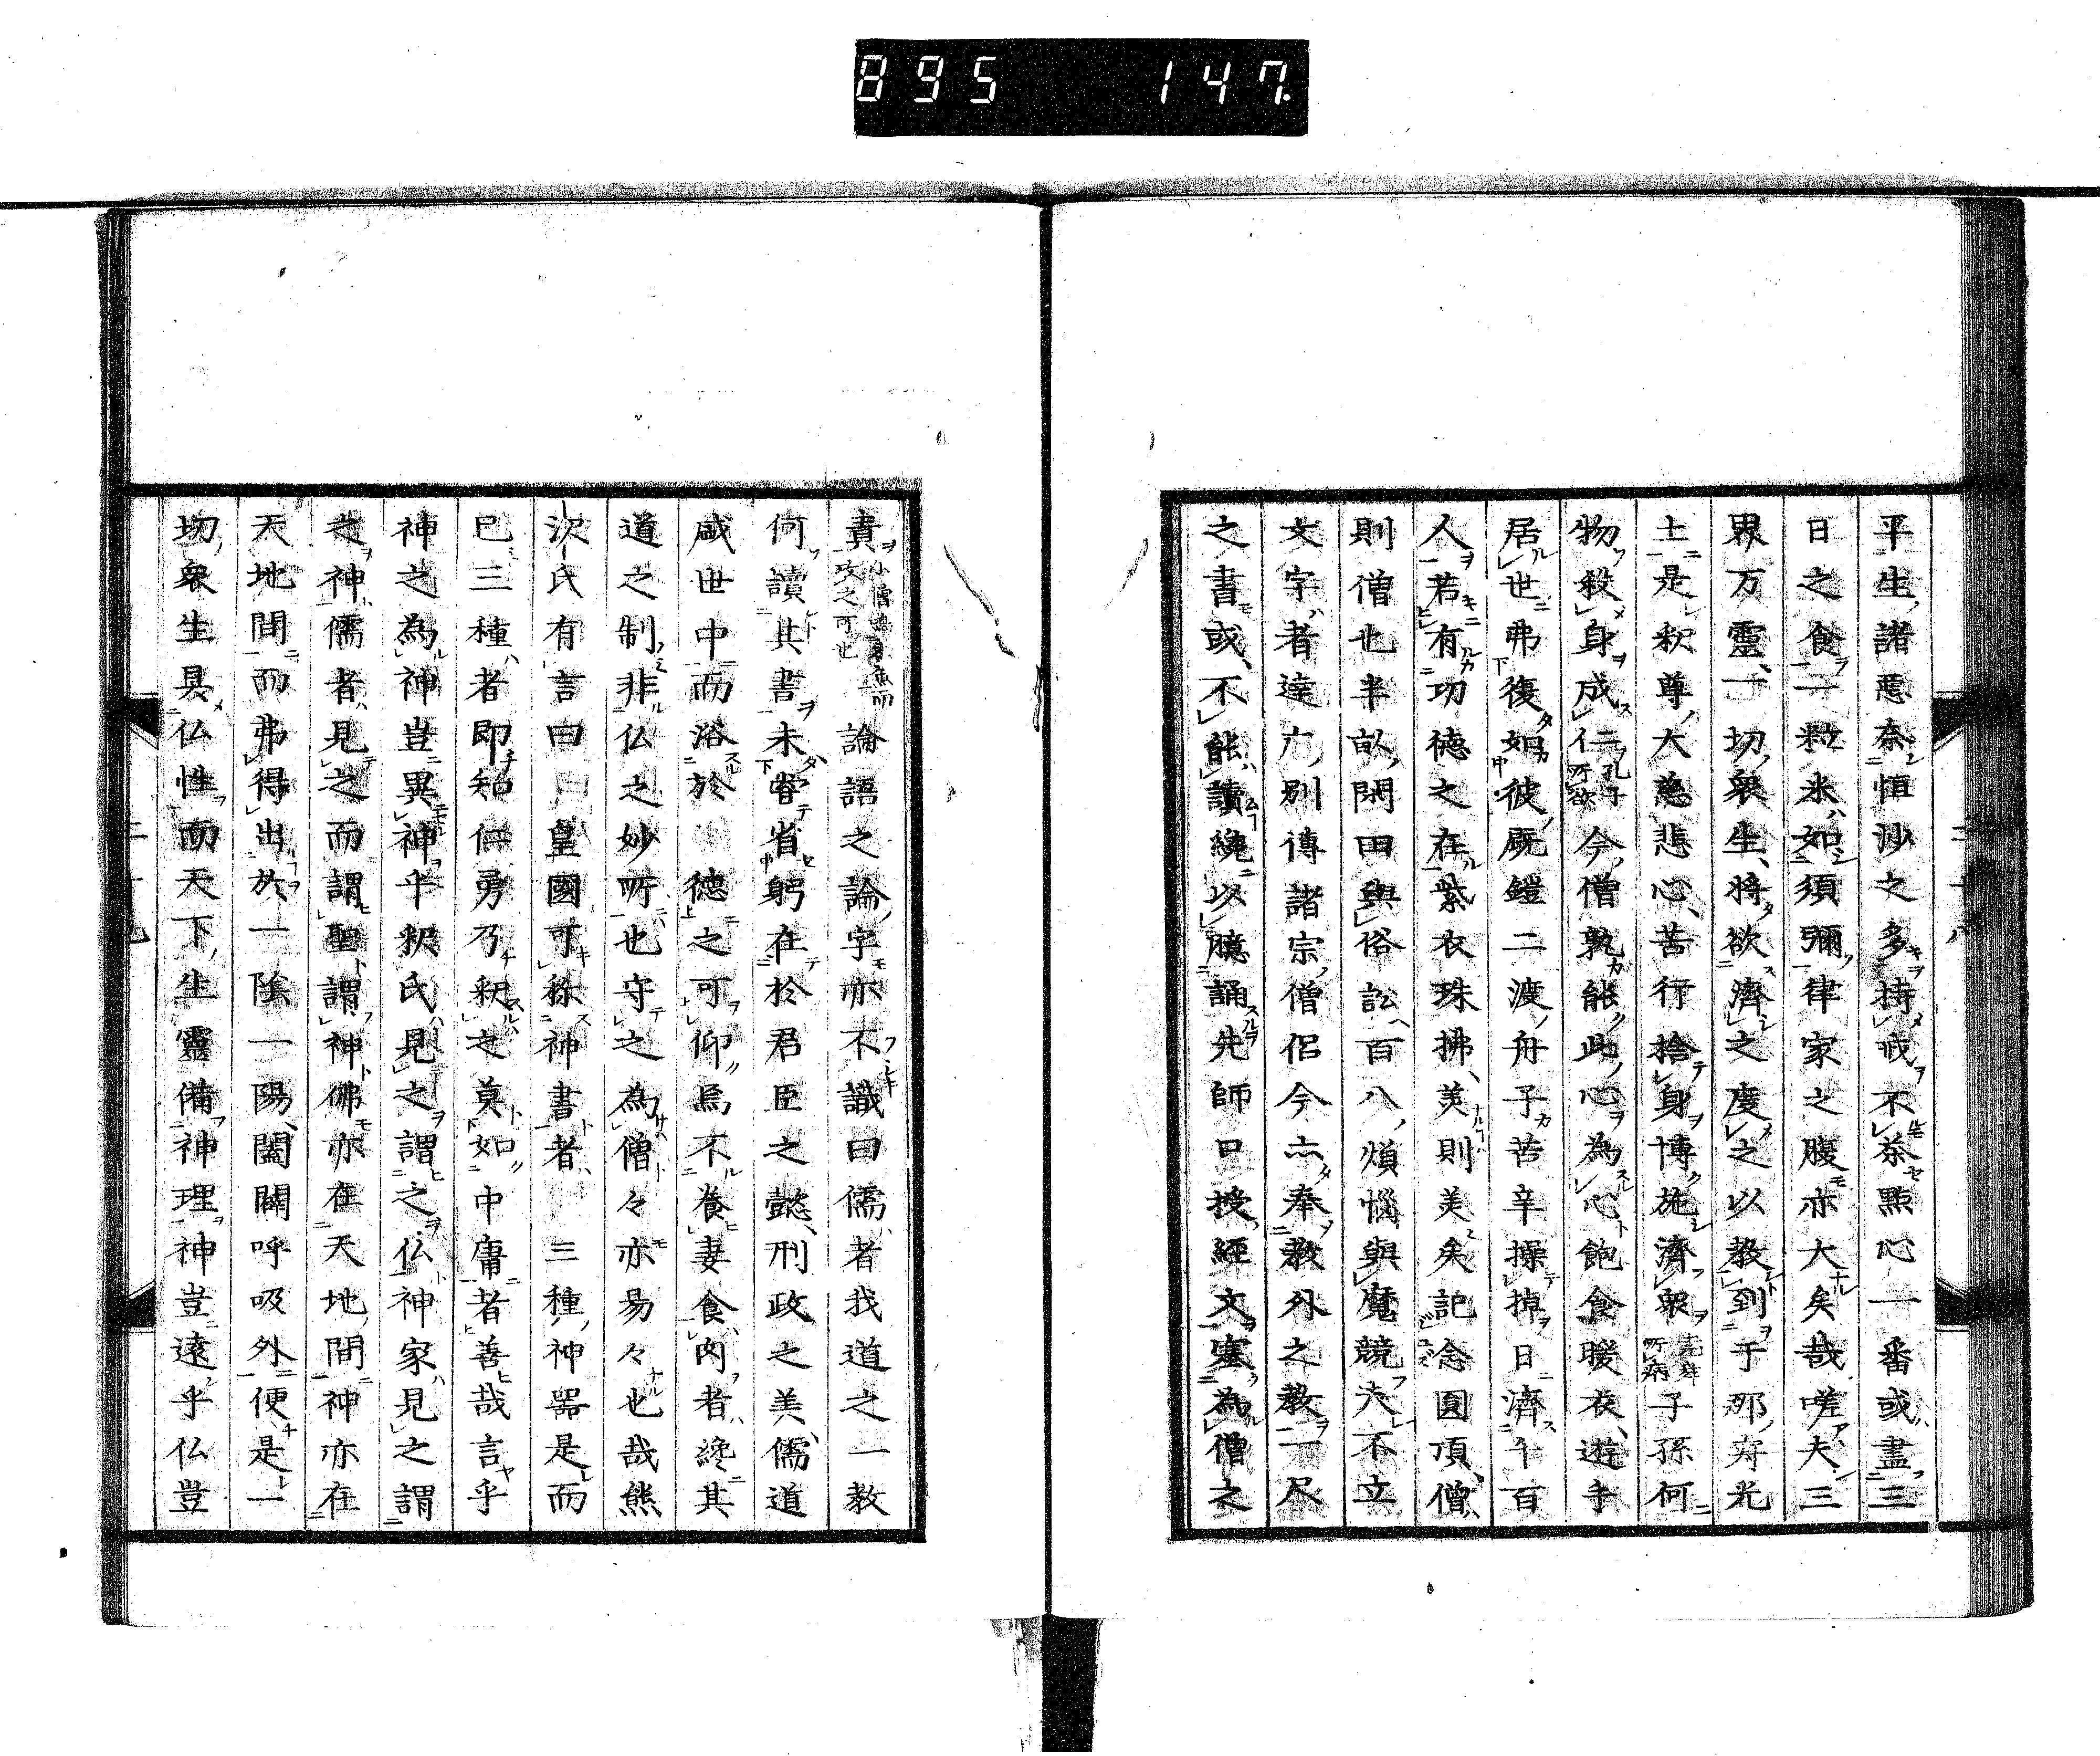 895 147
平生諸悪奈恒沙之多持戒不茶點心一番或盡三
日之食一粒米如須彌律家之腹亦大矣哉嗟夫三
界万靈一切衆生将欲濟之度之以教到于那寂光
土是釈尊大慈悲心苦行捨身博施濟衆 所病 子孫何
物殺身成仁 孔子所欲 今僧孰能此心為心飽食暖衣遊手
居世弗復如彼厩鎧二渡舟子苦辛操掉日濟千百
人若有功徳之在紫衣珠拂美則美矣記念圓頂僧
則僧也半畝閑田與俗訟百八煩惱與魔競夫不立
文字者達广別傳諸宗僧侶今亦奉教外之教一尺
之書或不能讀纔以臆誦先師口授経文塞為僧之
責 小僧 攻之可也 論語之論字亦不識曰儒者我道之一教
何讀其書未嘗省躬在於君臣之懿刑政之美儒道
盛世中而浴於 徳之可仰焉不養妻食肉者纔其
道之制非仏之妙所也守之為僧々亦易々也哉熊
沢氏有言曰 皇國可称神書者 三種神器是而
已三種者即知仁勇乃釈之莫如中庸者善哉言乎
神之為神豈異神乎釈氏見之謂之仏神家見之謂
之神儒者見之而謂聖謂神佛亦在天地間神亦在
天地間而弗得出於一陰一陽闔闢呼吸外便是一
切衆生具仏性而天下生靈備神理神豈遠乎仏豈